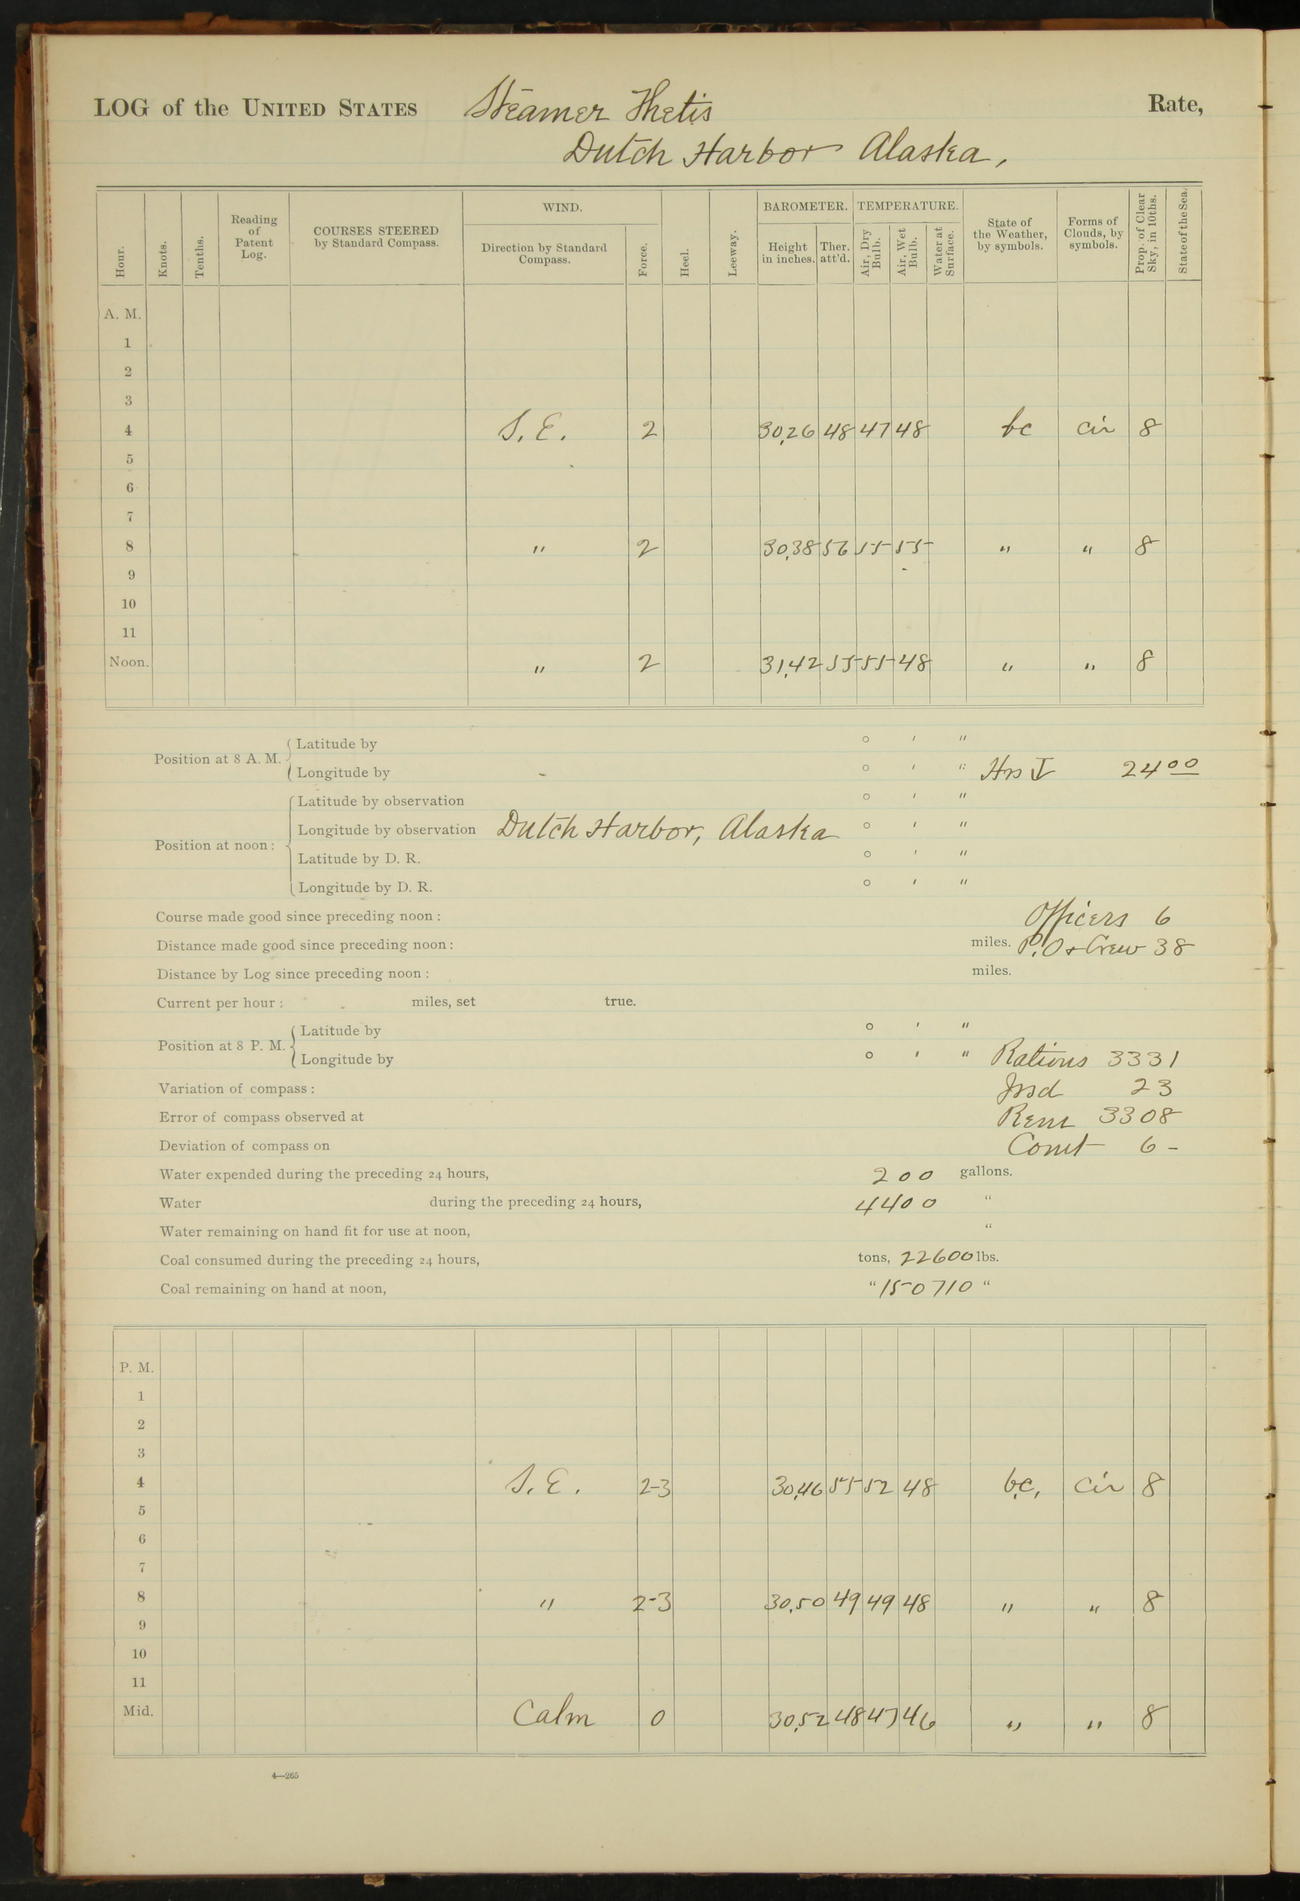 LOG of the UNITED STATES Steamer Thetis Rate,
Dutch Harbor Alaska,
WIND. BAROMETER. TEMPERATURE.
Hour. Knots. Tenths. Reading of Patent Log. COURSES STEERED by Standard Compass. Direction by Standard Compass. Force. Heel. Leeway. Height in inches. Ther. att'd. Air, Dry Bulb. Air, Wet Bulb. Water at Surface. State of the Weather, by symbols. Forms of Clouds, by symbols. Prop. of Clear Sky, in 10ths. State of the Sea.
A. M.
1
2
3
4 S. E. 2 30,26 48 47 48 bc cir 8
5
6
7
8 " 2 30,38 56 55 55 " " 8
9
10
11
Noon. " 2 31,42 55 55 48 " " 8
Position at 8 A. M. Latitude by ° ' "
Longitude by ° ' " 24 00
Position at noon: Latitude by observation ° ' "
Longitude by observation Dutch Harbor, Alaska ° ' "
Latitude by D. R. ° ' "
Longitude by D. R. ° ' "
Course made good since preceding noon: Officers 6
Distance made good since preceding noon: miles. P.O & Crew 38
Distance by Log since preceding noon: miles.
Current per hour: miles, set true.
Position at 8 P. M. Latitude by ° ' "
Longitude by ° ' " Rations 3331
Variation of compass: Issd 23
Error of compass observed at Rem 3308
Deviation of compass on Comt 6 -
Water expended during the preceding 24 hours, 200 gallons.
Water during the preceding 24 hours, 4400 "
Water remaining on hand fit for use at noon, "
Coal consumed during the preceding 24 hours, tons, 22600 lbs.
Coal remaining on hand at noon, " 150710 "
P. M.
1
2
3
4 S. E. 2-3 30,46 55 52 48 b.c, cir 8
5
6
7
8 " 2-3 30,50 49 49 48 " " 8
9
10
11
Mid. Calm 0 30,52 48 47 46 " " 8
4—265